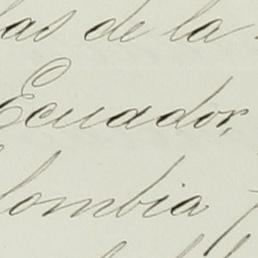 las de la
Ecuador,
lombia